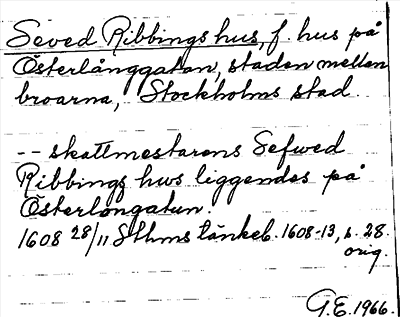 Seved Ribbings hus, f. hus på
Österlånggatan, staden mellan
broarna, Stockholms stad.
-- skattmestarens Sefwed
Ribbings hws liggendes på
Österlongatun.
1608 28/11 Sthms tänkeb. 1608-13, s. 28.
orig.
G.E. 1966.